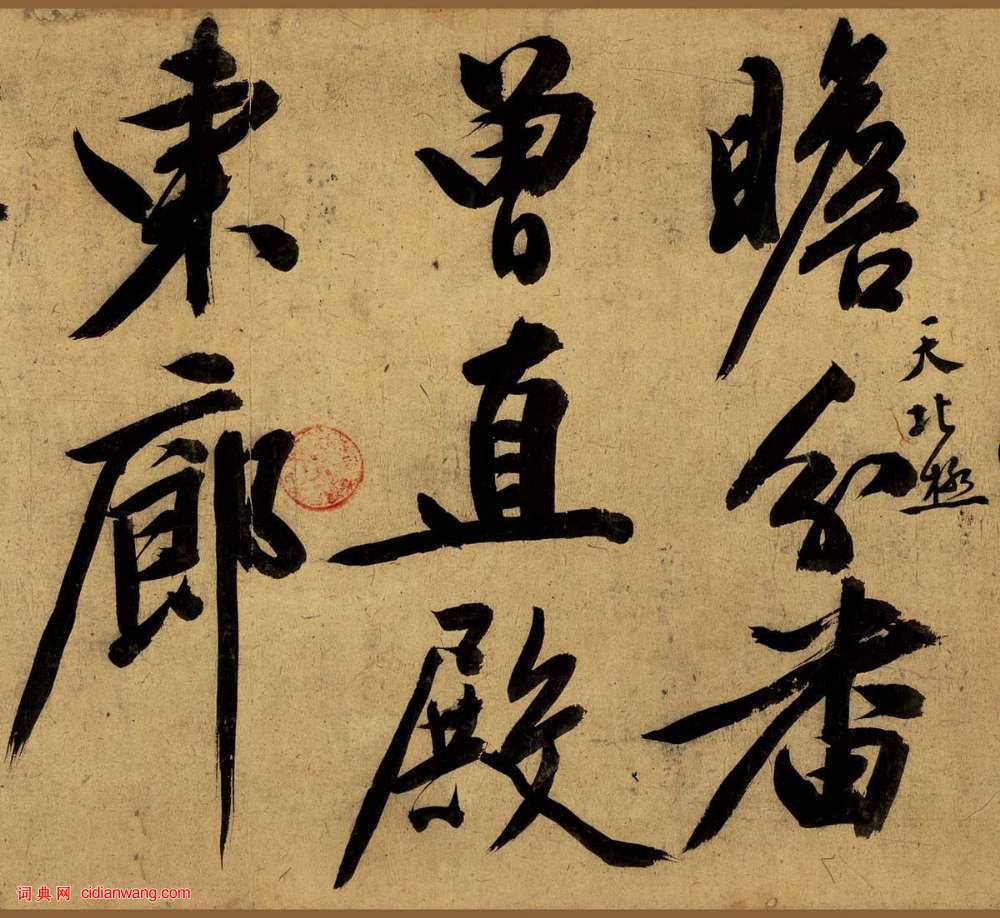 瞻分番
天北極
曾直殿
東廊
词典网 cidianwang.com